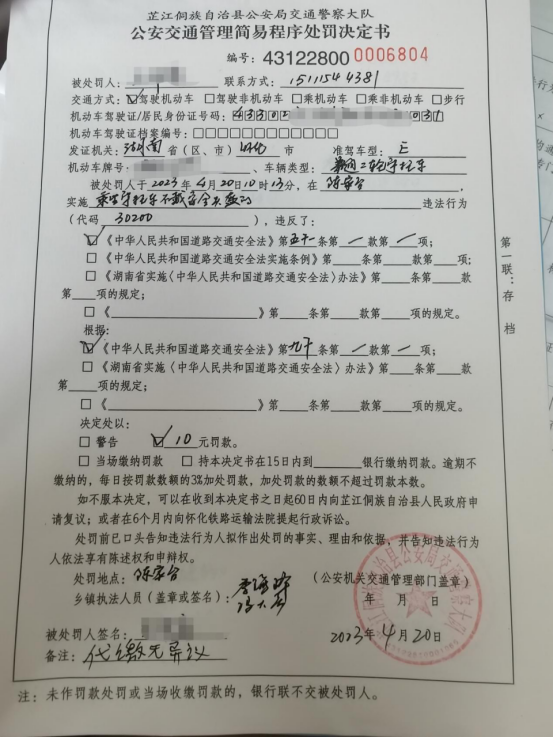 芷江侗族自治县公安局交通警察大队
公安交通管理简易程序处罚决定书
编号：43122800 0006804
被处罚人： 联系方式：1511544381
交通方式：☑驾驶机动车 □驾驶非机动车 □乘机动车 □乘非机动车 □步行
机动车驾驶证/居民身份证号码：
机动车驾驶证档案编号：□□□□□□□□□□□□
发证机关：湖南省（区、市）怀化市 准驾车型：E
机动车牌号 、车辆类型：普通二轮摩托车
被处罚人于2023年4月20日10时13分，在陈家台，
实施乘坐摩托车不戴安全头盔的违法行为
（代码30200），违反了：
☑《中华人民共和国道路交通安全法》第五十一条第一款第一项；
□《中华人民共和国道路交通安全法实施条例》第 条第 款第 项；
□《湖南省实施〈中华人民共和国道路交通安全法〉办法》第 条第 款
第 项的规定；
□《 》第 条第 款第 项的规定。
根据：
☑《中华人民共和国道路交通安全法》第九十条第一款第一项；
□《湖南省实施〈中华人民共和国道路交通安全法〉办法》第 条第 款
第 项的规定；
□《 》第 条第 款第 项的规定。
决定处以：
□ 警告 ☑ 10元罚款。
□ 当场缴纳罚款 □ 持本决定书在15日内到 银行缴纳罚款。逾期不
缴纳的，每日按罚款数额的3%加处罚款，加处罚款的数额不超过罚款本数。
如不服本决定，可以在收到本决定书之日起60日内向芷江侗族自治县人民政府申
请复议；或者在6个月内向怀化铁路运输法院提起行政诉讼。
处罚前已口头告知违法行为人拟作出处罚的事实、理由和依据，并告知违法行为
人依法享有陈述权和申辩权。
处罚地点：陈家台
（公安机关交通管理部门盖章）
乡镇执法人员（盖章或签名）：
年 月 日
2023年4月20日
被处罚人签名：
备注：代缴无异议
注：未作罚款处罚或当场收缴罚款的，银行联不交被处罚人。
第一联：存档